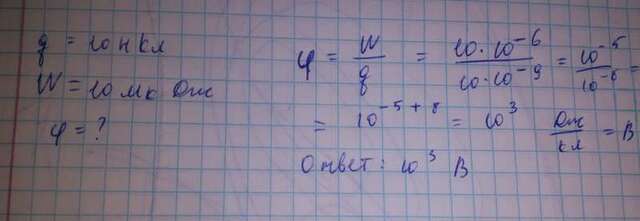 q = 10 н Кл
W = 10 мк Дж
φ = ?
φ = W/q = 10·10⁻⁶/10·10⁻⁹ = 10⁻⁵/10⁻⁸ =
= 10⁻⁵⁺⁸ = 10³ Дж/кл = В
Ответ: 10³ В